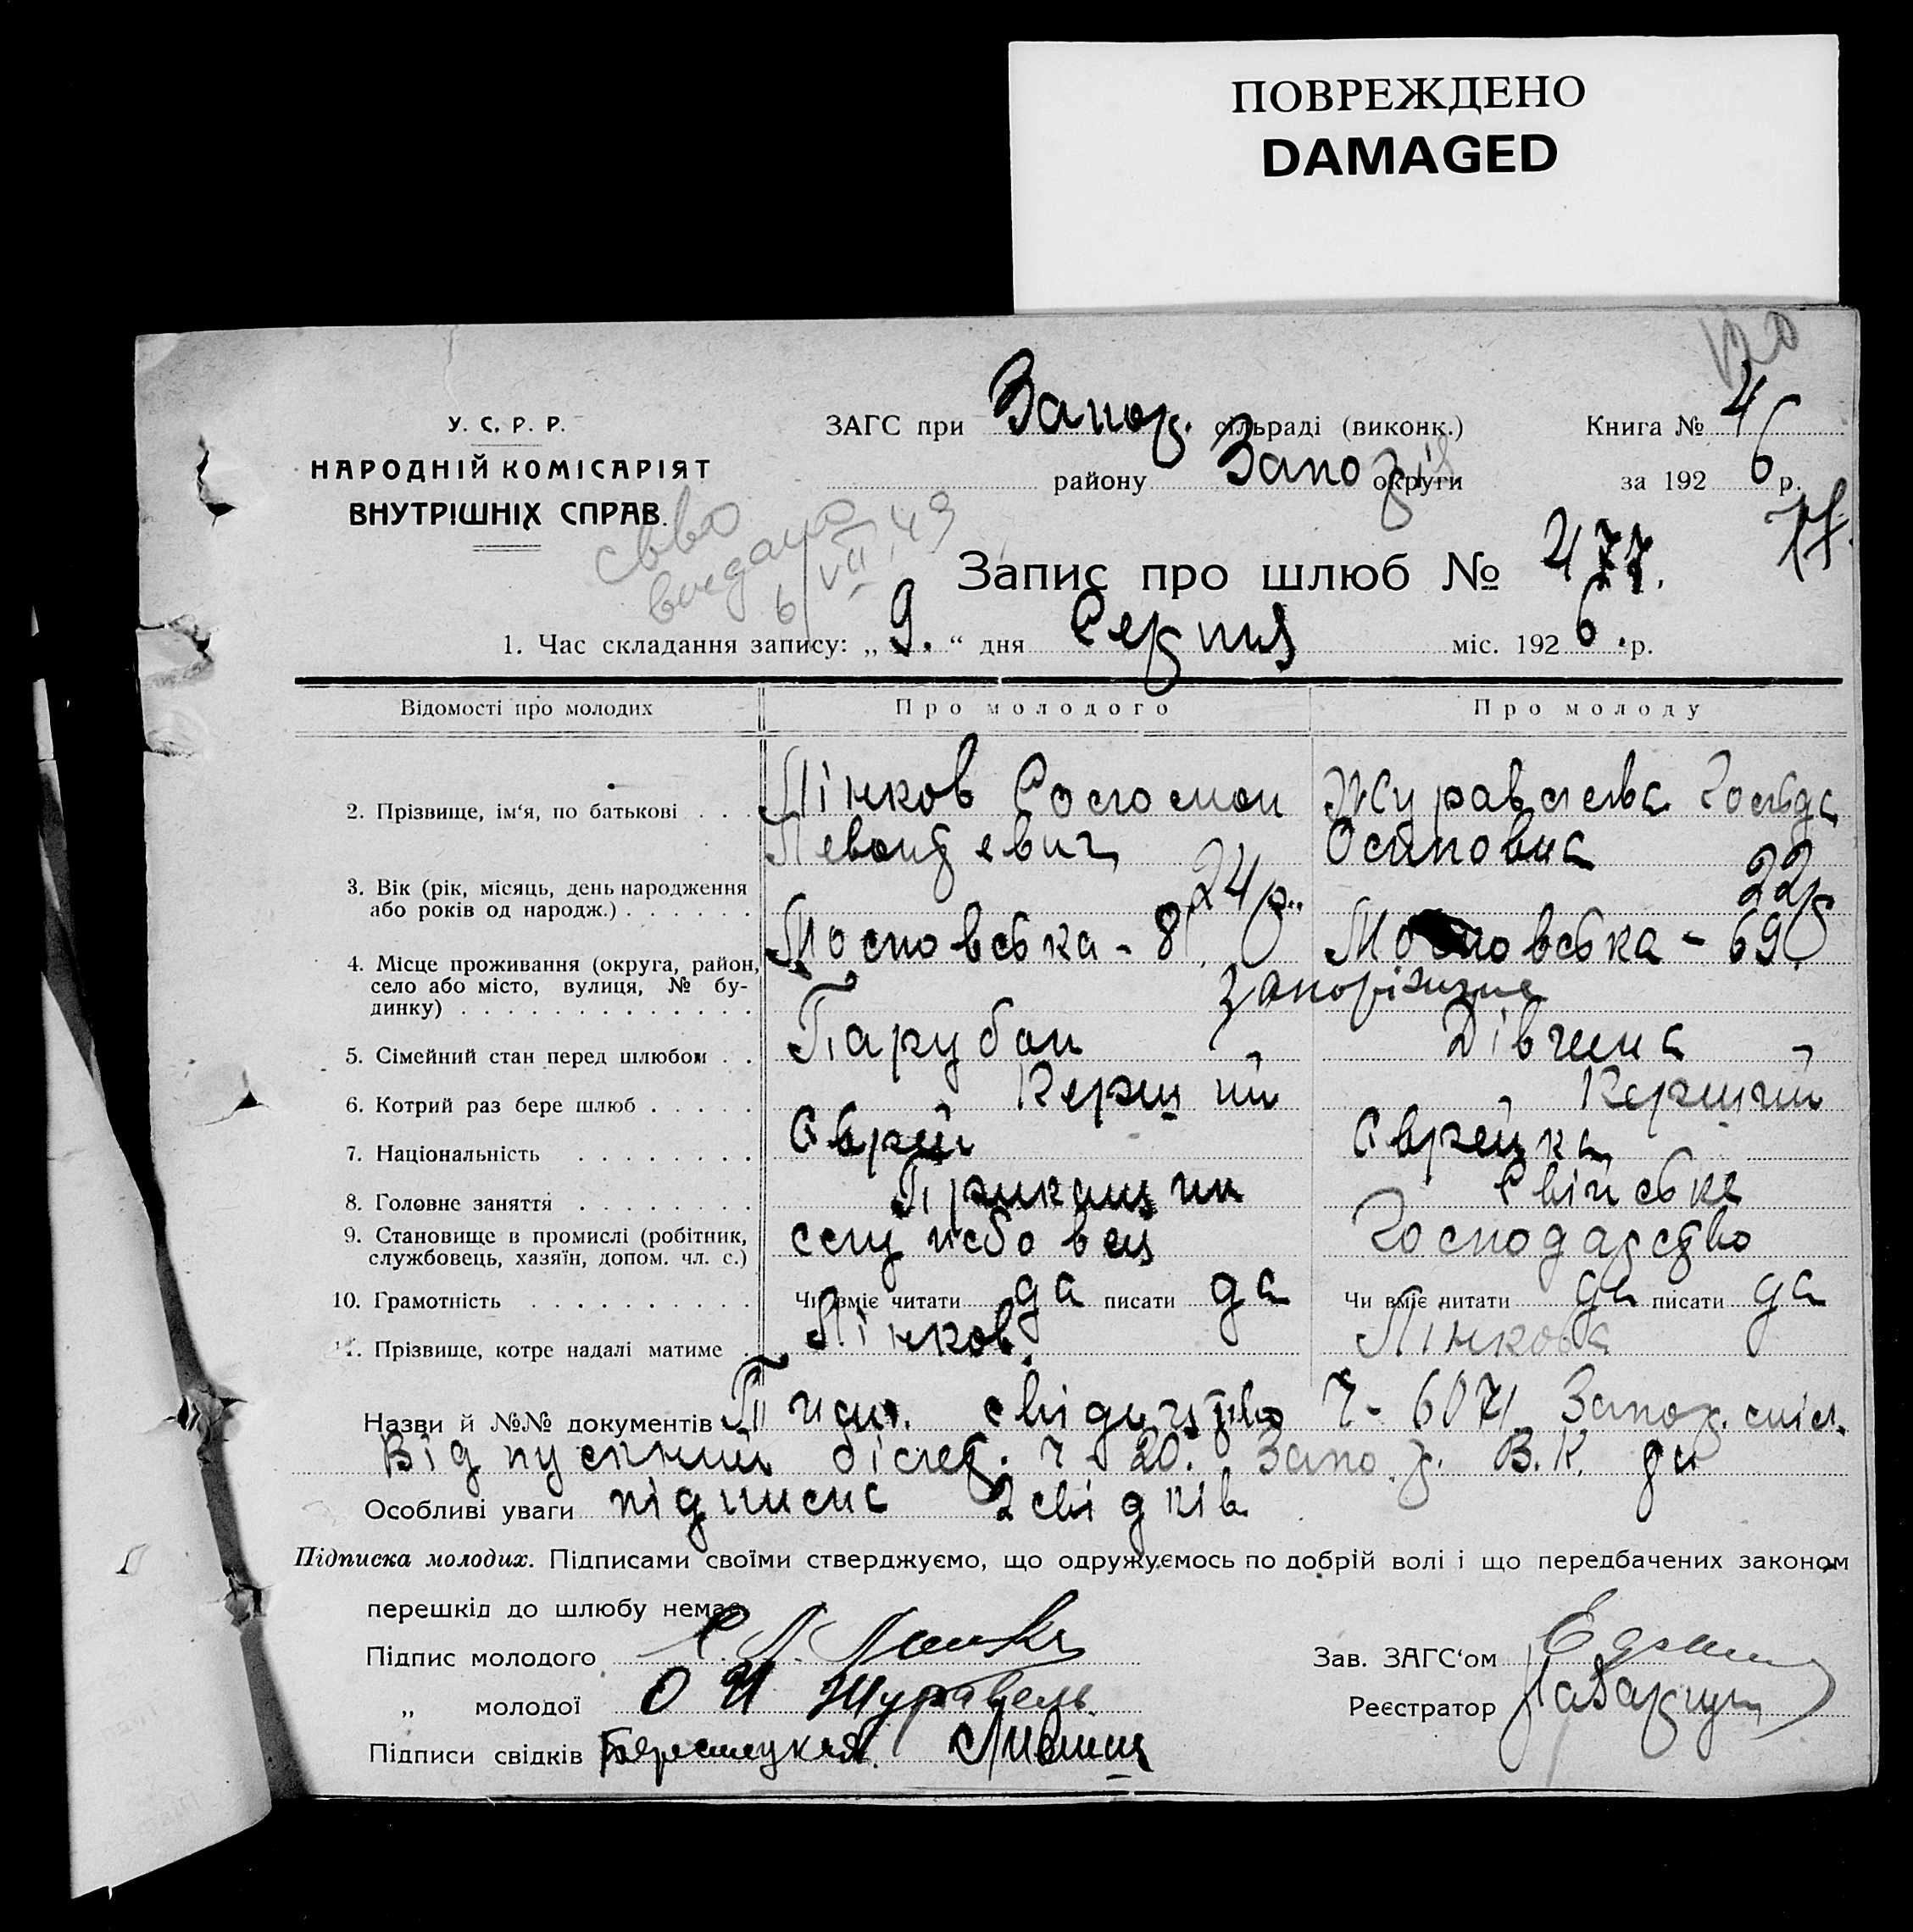 ПОВРЕЖДЕНО
DAMAGED
120
У. С. Р. Р.
НАРОДНІЙ КОМІСАРІЯТ
ВНУТРІШНІХ СПРАВ.
ЗАГС при Запор. сільраді (виконк.)
району Запоріз округи
Книга № 4
за 1926 р.
77
свво
видано
6/VII.49
Запис про шлюб № 477.
1. Час складання запису: „ 9. “ дня Серпня міс. 1926.р.
Відомості про молодих Про молодого Про молоду
2. Прізвище, ім‘я, по батькові . . . Лінков Соломон Журавльова Гольда
Левонтевич Осиповна
3. Вік (рік, місяць, день народження
або років од народж.) . . . . . . 24 р. 22 р
4. Місце проживання (округа, район, село або місто, вулиця, № будинку) . . . Московська - 8. Московська - 69.
Запоріжжя
5. Сімейний стан перед шлюбом . . Парубок Дівчина
6. Котрий раз бере шлюб . . . . . Перший Перший
7. Національність . . . . . . . . Єврей Єврейка
8. Головне заняття . . . . . . . . Прикащик Свійське
9. Становище в промислі (робітник,
службовець, хазяїн, допом. чл. с.) службовец Господарство
10. Грамотність . . . . . . . . . . Чи вміє читати да писати да Чи вміє читати да писати да
11. Прізвище, котре надалі матиме . Лінков. Лінкова
Назви й №№ документів свідоцтво Ч- 6071 Запор.
Відпускний білет. ч - 20. Запор. В.К. да
Особливі уваги підписка 2 свідків
Підписка молодих. Підписами своїми стверджуємо, що одружуємось по добрій волі і що передбачених законом
перешкід до шлюбу немає.
Підпис молодого С. Л.
Зав. ЗАГС‘ом
„ молодої О И Журавель
Реєстратор
Підписи свідків Берестецкая. Лившиц